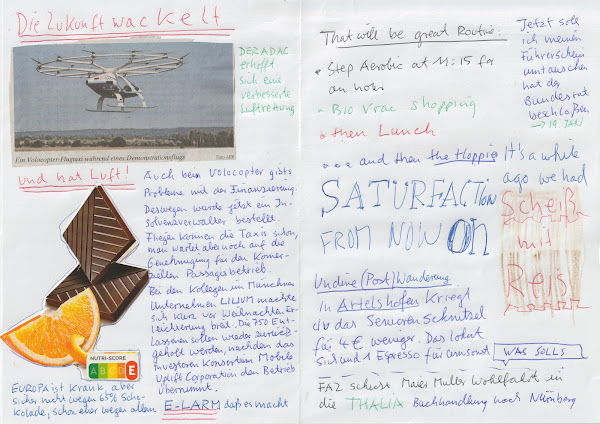 Die Zukunft wackelt
DER ADAC
erhofft
sich eine
verbesserte
Luftrettung
Ein Volocopter-Flugtaxi während eines Demonstrationsflugs
und hat Luft!
Auch beim Volocopter gibts
Probleme mit der Finanzierung.
Deswegen wurde jetzt ein In-
solvenzverwalter bestellt.
Fliegen können die Taxis schon,
man wartet aber noch auf die
Genehmigung für den Kommer-
ziellen Passagierbetrieb.
Bei den Kollegen im Münchner
Unternehmen LILIUM machte
sich kurz vor Weihnachten Er-
leichterung breit. Die 750 Ent-
lassenen sollen wieder zurück-
geholt werden, nachdem das
Investoren Konsortium Mobile
Uplift Corporation den Betrieb
übernimmt.
NUTRI-SCORE
A B C D E
EUROPA ist krank, aber
sicher nicht wegen 65% Scho-
kolade, schon eher wegen allem
E-LARM daß es macht
That will be great Routine:
Step Aerobic at 11:15 for
an hour
Bio Vrac Shopping
then Lunch
... and then the Floppie
SATURFACTION
FROM NOW On
Undine (Post) Wanderung
In Artelshofen kriegt
das Senioren Schnitzel
für 4 € weniger. Das lohnt
sich und 1 Espresso für umsonst
WAS SOLLS
FAZ schickt Maier Müller Wohlfahrt in
die THALIA Buchhandlung nach Nürnberg
Jetzt soll
ich meinen
Führerschein
umtauschen
hat der
Bundesrat
beschloßen
→ 19. JAN
It's a while
ago we had
Scheiß
mit
Reis